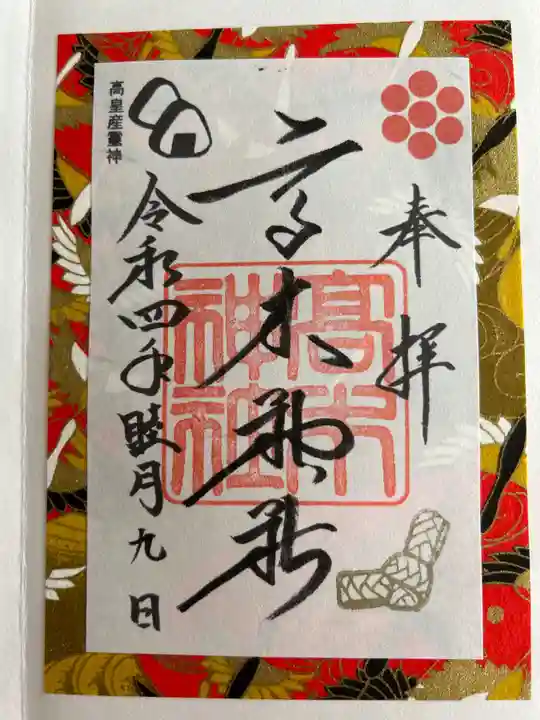 奉拝
高木神社
高木神社
令和四年睦月九日
高皇産靈神